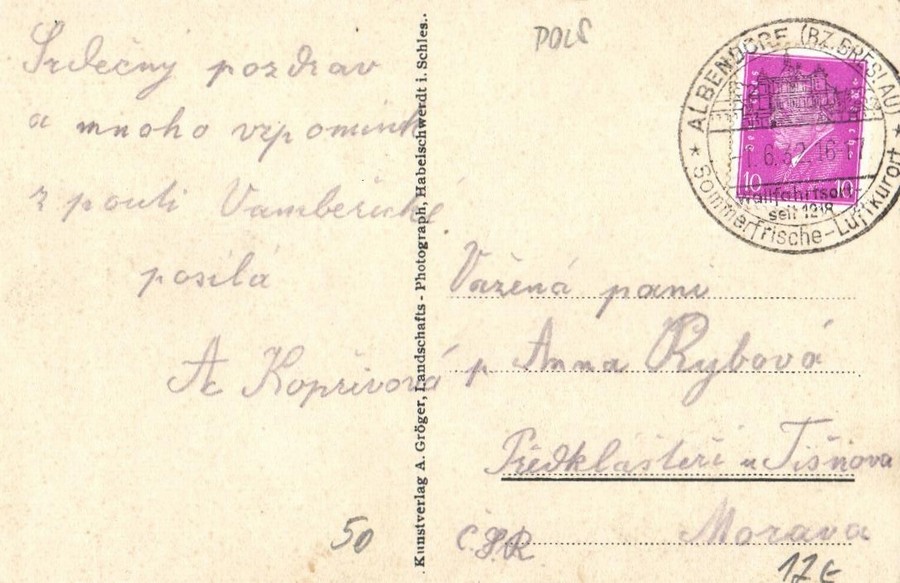 Srdečný pozdrav
a mnoho vzpomínk
z pouti Vambeřické
posílá
A Kopřivová
. Kunstverlag A. Gröger, Landschafts - Photograph, Habelschwerdt i. Schles..
POLS
ALBENDORF (BZ. BRESLAU)
Deutsches Reich
1.6.32.16-17
10 10
Wallfahrtsort-
seit 1218
* Sommerfrische-Luftkurort *
Vážená paní
p Anna Rybová
Předklášteří u Tišnova
Morava
Č.S.R
50
17€